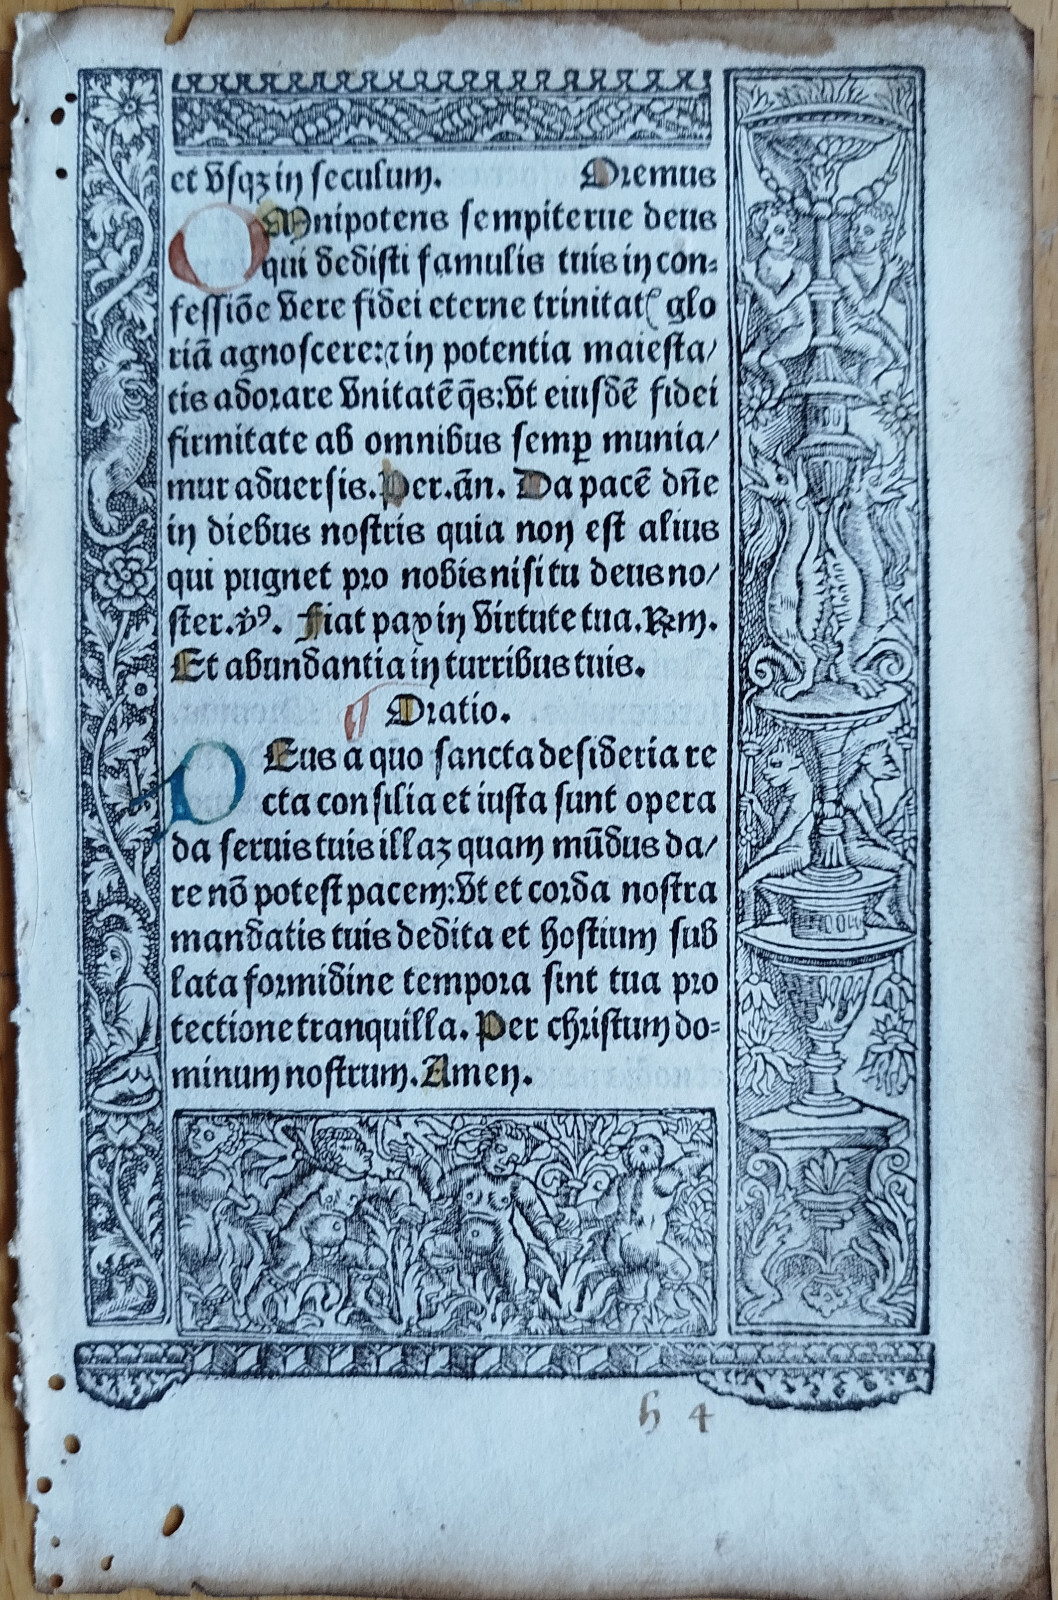 et v̄sqꝫ in seculum. Oremus
OMnipotens sempiterne deus
qui dedisti famulis tuis in con=
fessiōe vere fidei eterne trinitatꝭ glo
riā agnoscere:⁊ in potentia maiesta/
tis adorare vnitatē q̄s:vt eiusdē fidei
firmitate ab omnibus semꝑ munia/
mur aduersis. Per. ān. Da pacē dn̄e
in diebus nostris quia non est alius
qui pugnet pro nobis nisi tu deus no/
ster. v̉ꝰ. Fiat pax in virtute tua. Rm̄.
Et abundantia in turribus tuis.
¶ Oratio.
DEus a quo sancta desideria re
cta consilia et iusta sunt opera
da seruis tuis illaꝫ quam mūdus da/
re nō potest pacem:vt et corda nostra
mandatis tuis dedita et hostium sub
lata formidine tempora sint tua pro
tectione tranquilla. Per christum do=
minum nostrum. Amen.
h 4